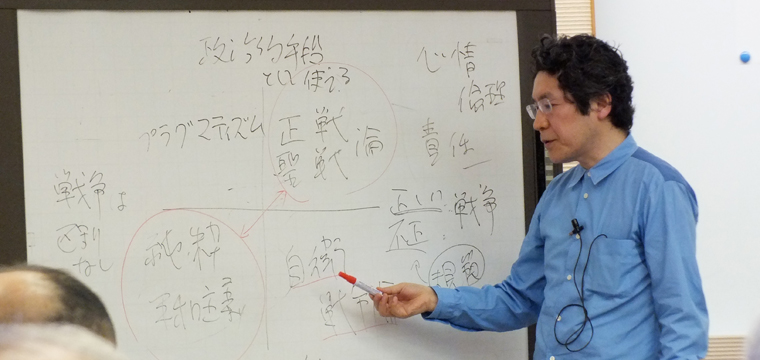 政治的手段
として使える
プラグマティズム
正戦
聖戦
論
心情
倫理
責任
戦争は
区別
なし
純粋
正しい戦争
不正
自衛